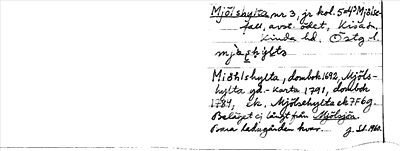 Mjölshylta, nr 3, jr kol. 5-4³ Mjölse-
fall, avs. ödet, Kisa sn,
Kinda hd, Östg. l.
Miöhlshylta, dombok 1692, Mjöls-
hylta gd. - Karta 1791, dombok
1784, ek. Mjölsehylta ek 7F6g.
Beläget ej långt från Mjölsjön.
Bara ladugården kvar.